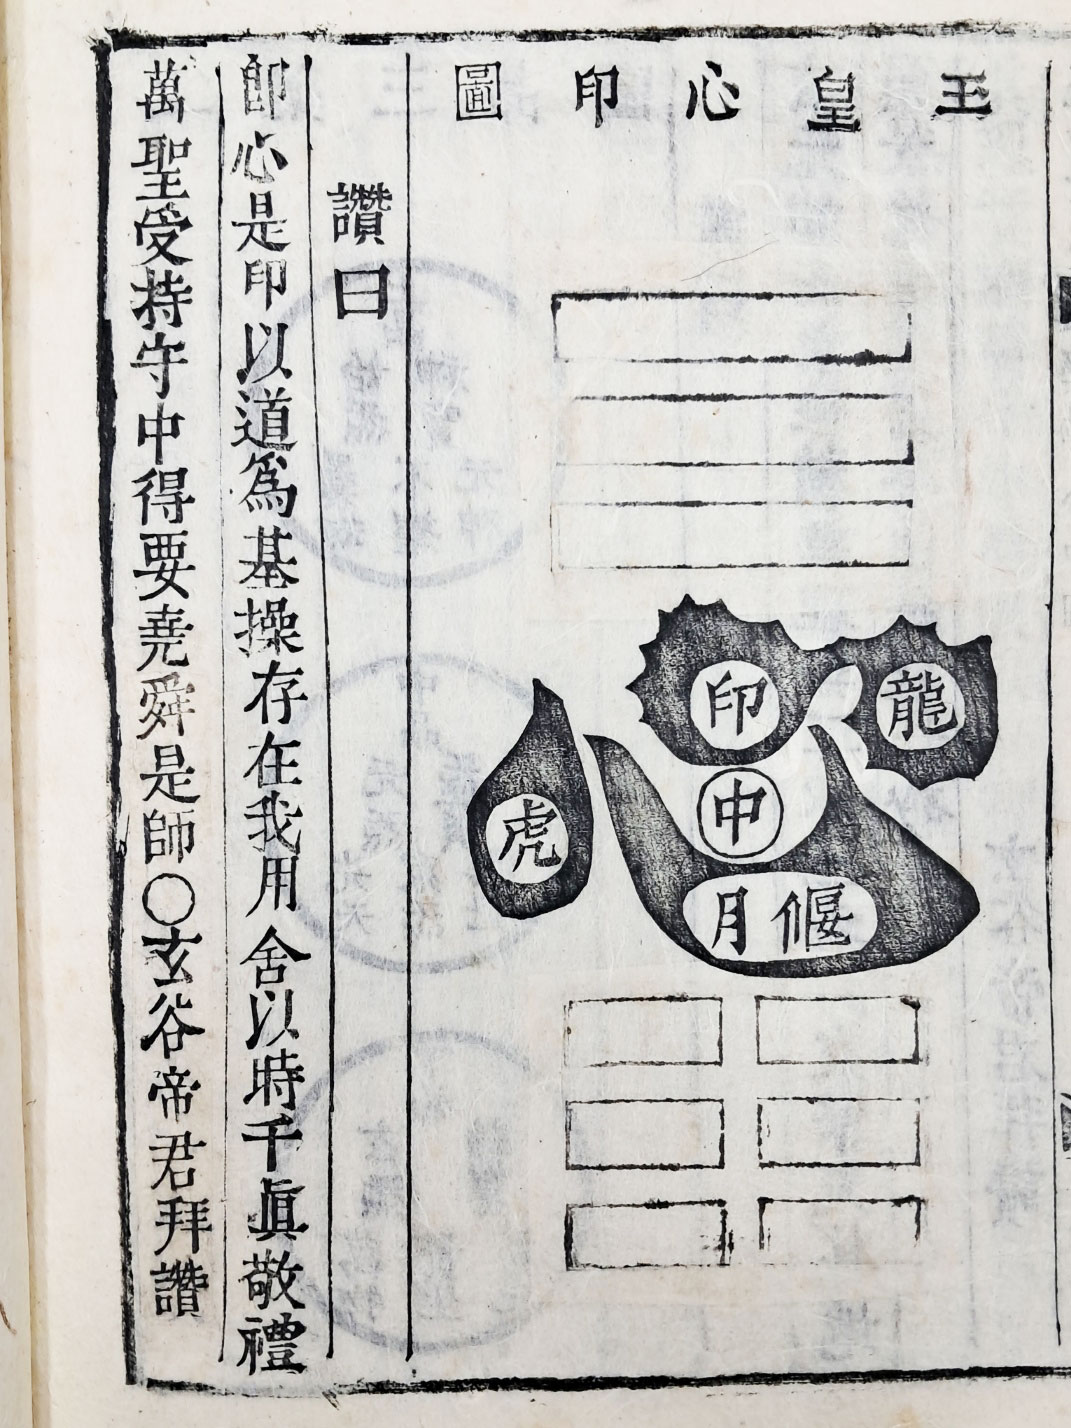 玉皇心印圖
印
龍
中
虎
偃月
讚曰
卽心是印以道爲基操存在我用舍以時千眞敬禮
萬聖受持守中得要堯舜是師○玄谷帝君拜讚